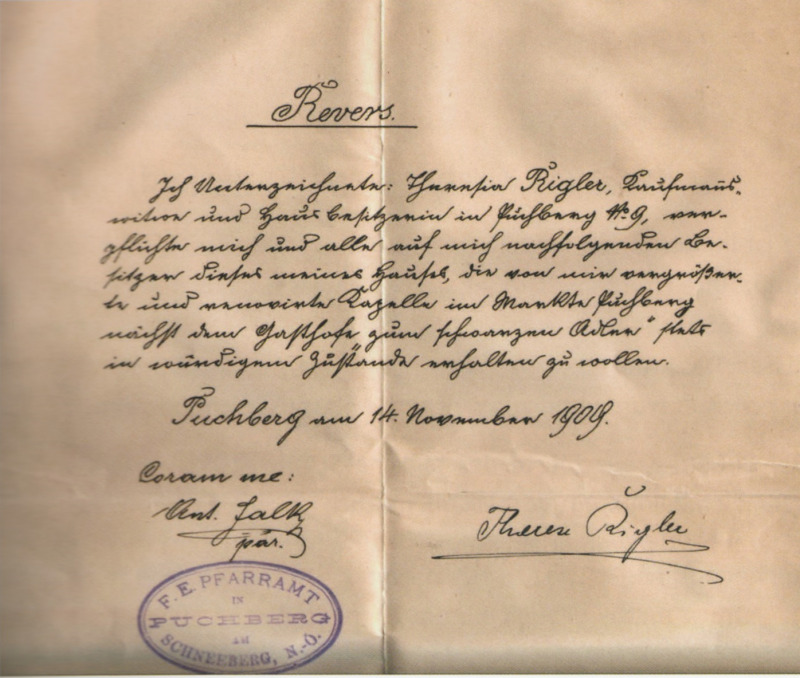 Revers.
Ich Unterzeichnete: Theresia Rigler, Kaufmanns-
witwe und Hausbesitzerin in Puchberg No 9, ver-
pflichte mich und alle auf mich nachfolgenden Be-
sitzer dieses meines Hauses, die von mir vergrößer-
te und renovirte Kapelle im Markte Puchberg
nächst dem Gasthofe „zum schwarzen Adler“ stets
in würdigem Zustande erhalten zu wollen.
Puchberg am 14. November 1909.
Coram me:
Ant. Falk
par.
Therese Rigler
F. E. PFARRAMT
IN
PUCHBERG
AM
SCHNEEBERG, N.-Ö.